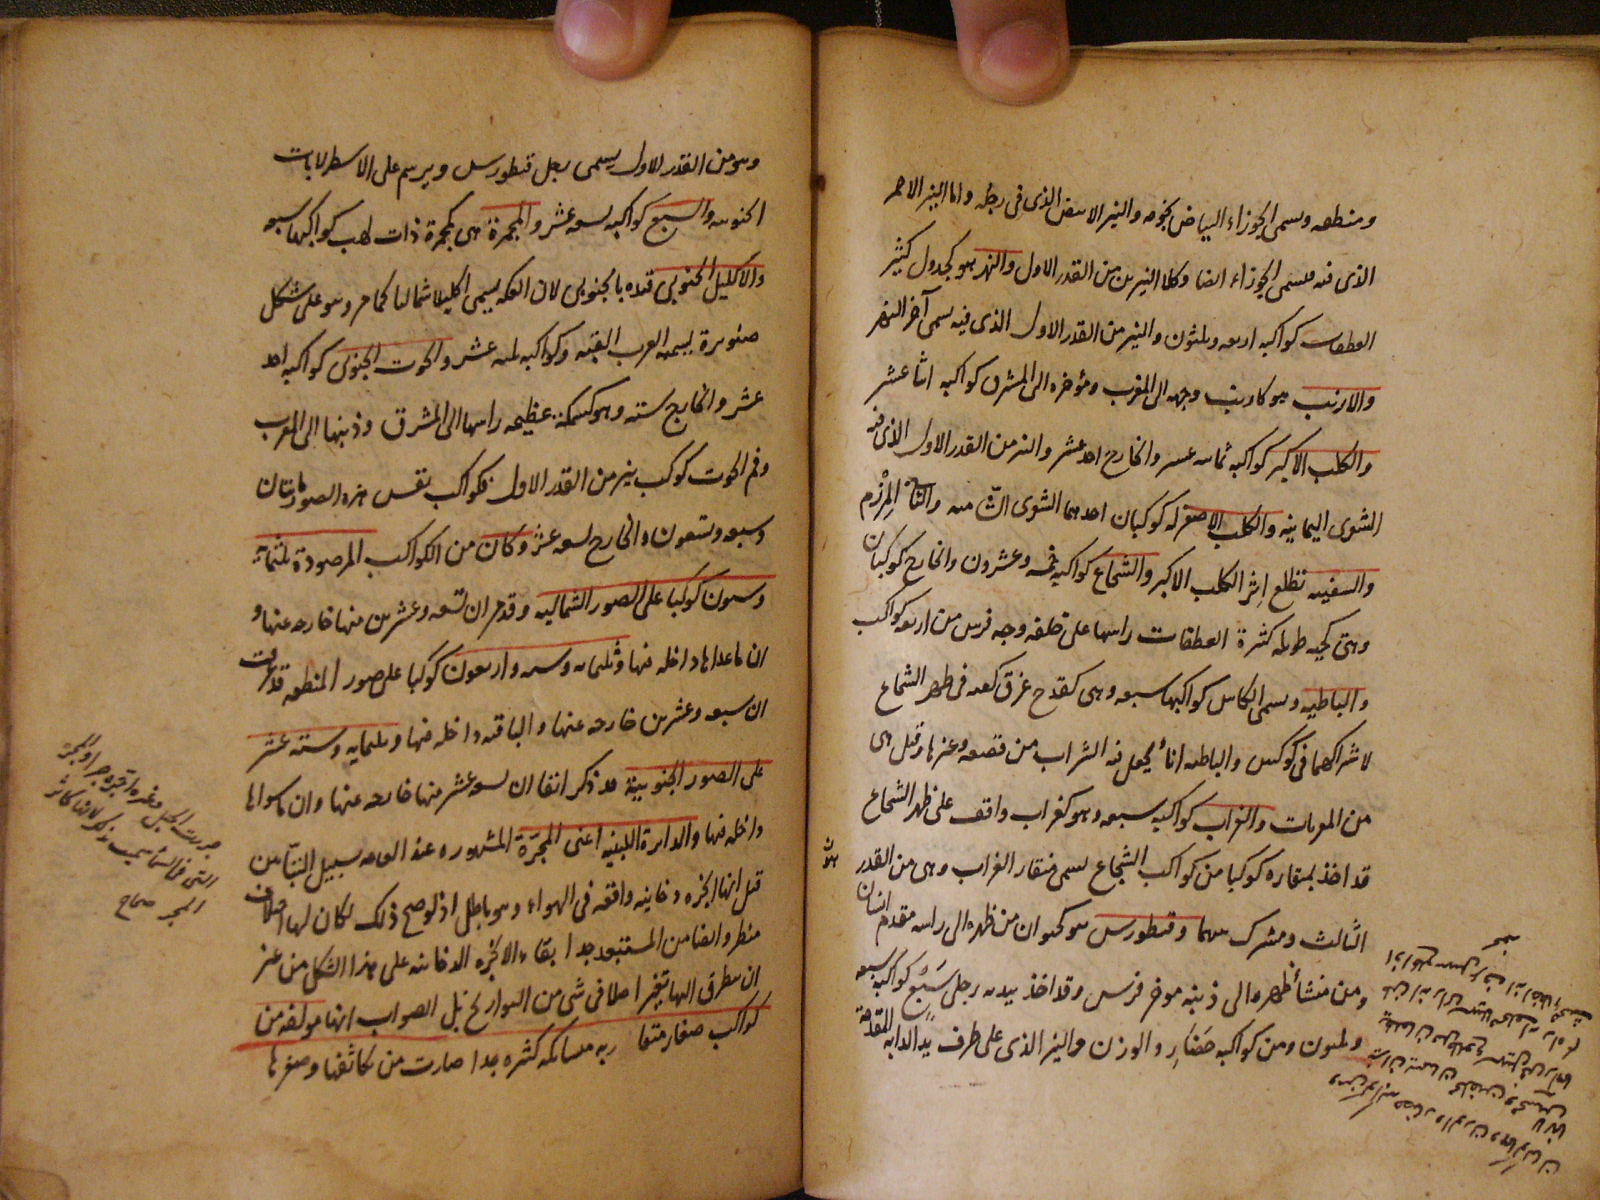 ومنطقه ويسمى الجوزاء البياض نجومه والنير الابيض الذى فى رجله واما النير الاحمر
الذى فيه فيسمى الجوزاء ايضا وكلا النيرين من القدر الاول والنهر هو كجدول كثير
العطفات كواكبه اربعه وثلثون والنير من القدر الاول الذى فيه يسمى آخر النهر
والارنب هو كارنب وجهه الى المغرب ومؤخره الى المشرق كواكبه اثنا عشر
والكلب الاكبر كواكبه ثمانيه عشر والخارج احد عشر والنير من القدر الاول الذى فيه
الشعرى اليمانيه والكلب الاصغر له كوكبان احدهما الشعرى الشاميه والثانى المرزم
والسفينه تطلع اثر الكلب الاكبر والشجاع كواكبه خمسه وعشرون والخارج كوكبان
وهى كحيه طويله كثيرة العطفات راسها على خلقه وجه فرس من اربعه كواكب
والباطيه ويسمى الكاس كواكبها سبعه وهى كقدح غرق كعبه فى ظهر الشجاع
لاشتراكهما فى كوكبين والباطيه اناء يجعل فيه الشراب من قصعه وغيرها وقيل هى
من المعربات والغراب كواكبه سبعه وهو كغراب واقف على ظهر الشجاع
قد اخذ بمنقاره كوكبا من كواكب الشجاع يسمى منقار الغراب وهى من القدر
الثالث ومشترك بينهما وقنطورس هو كحيوان من ظهره الى راسه مقدم انسان
ومن منشأ ظهره الى ذنبه مؤخر فرس وقد اخذ بيديه رجلى سبع كواكبه سبعه
وثلثون ومن كواكبه حضار والوزن والنير الذى على طرف يد الدابه المقدمة
وهو من القدر الاول يسمى رجل قنطورس ويرسم على الاسطرلابات
الجنوبيه والسبع كواكبه تسعه عشر والمجمرة هى كمجمرة ذات لهب كواكبها سبعه
والاكليل الجنوبى قيده بالجنوبى لان الفكه يسمى اكليلا شماليا كما مر وهو على شكل
صنوبرة يسميه العرب القبه وكواكبه ثلثه عشر والحوت الجنوبى كواكبه احد
عشر والخارج سته وهو كسمكة عظيمه راسها الى المشرق وذنبها الى المغرب
وفم الحوت كوكب نير من القدر الاول فكواكب نفس هذه الصور مايتان
وسبعه وتسعون والخارج تسعه عشر وكان من الكواكب المرصودة ثلثمائة
وستون كوكبا على الصور الشماليه وقد مر ان تسعه وعشرين منها خارجه عنها و
ان ما عداها داخله فيها وثلثمايه وسته واربعون كوكبا على صور المنطقه قد عرفت
ان سبعه وعشرين خارجه عنها والباقيه داخله فيها وثلثمايه وسته عشر
على الصور الجنوبية قد ذكر انفا ان تسعه عشر منها خارجه عنها وان ما سواها
داخله فيها والدائرة اللبنيه اعنى المجرّة المشهوره عند العامه بسبيل التبّانين
قيل انها ابخره دخانيه واقفه فى الهواء وهو باطل اذ لو صح ذلك لكان لها اختلاف
منظر وايضا من المستبعد جدا بقاء الابخره الدخانيه على هذا الشكل من غير
ان يتطرق اليها تغير اصلا فى شى من التواريخ بل الصواب انها مولفه من
كواكب صغار متقاربه متشابكه كثيره جدا صارت من تكاثفها وصغرها